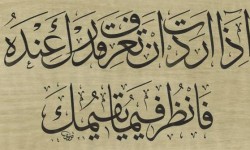 اذا اردت ان تعرف قدرك عنده
فانظر فيما يقيمك